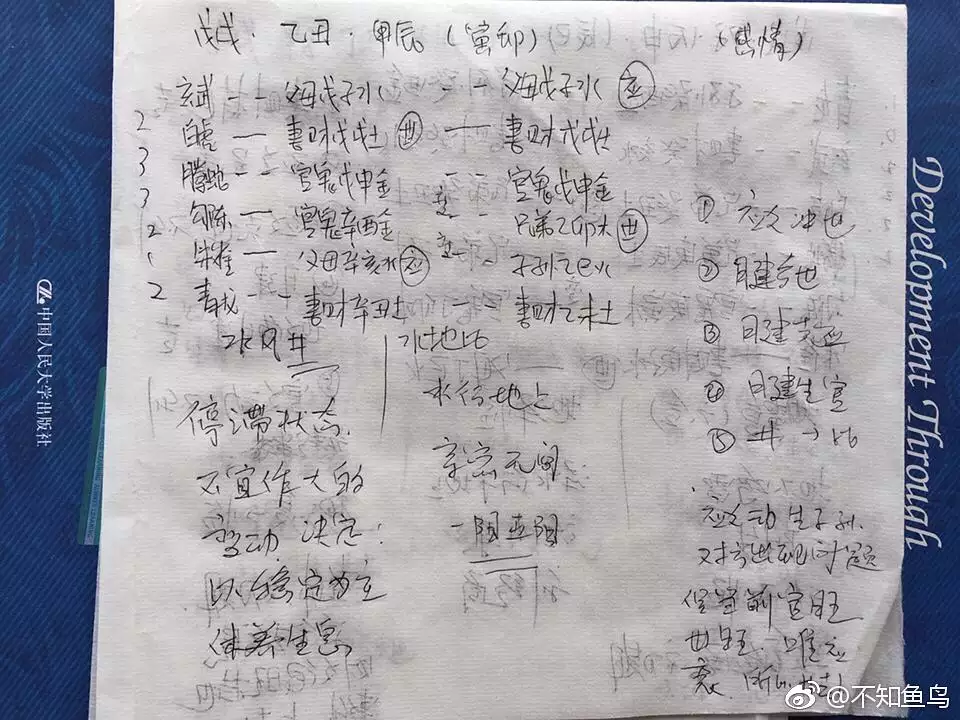 戊戌·乙丑·甲辰(寅卯) (感情)
玄武 -- 父母戊子水 -- 父母戊子水 应
2 白虎 — 妻财戊戌土 世 — 妻财戊戌土
3 腾蛇 -- 官鬼戊申金 -- 官鬼戊申金
3 勾陈 — 官鬼辛酉金 -- 兄弟乙卯木 世
2 朱雀 — 父母辛亥水 应 -- 子孙乙巳火
1
2 青龙 -- 妻财辛丑土 -- 妻财乙未土
水风井
停滞状态
不宜作大的
变动 决定:
以稳定为主
休养生息
水地比
水行地上
亲密无间
一阳五阴
① 应爻冲世
② 日建合世
③ 日建克应
④ 日建生官
⑤ 井→比
应爻动生子孙
对方出现问题
世旺
Development Through
中国人民大学出版社
@不知鱼鸟